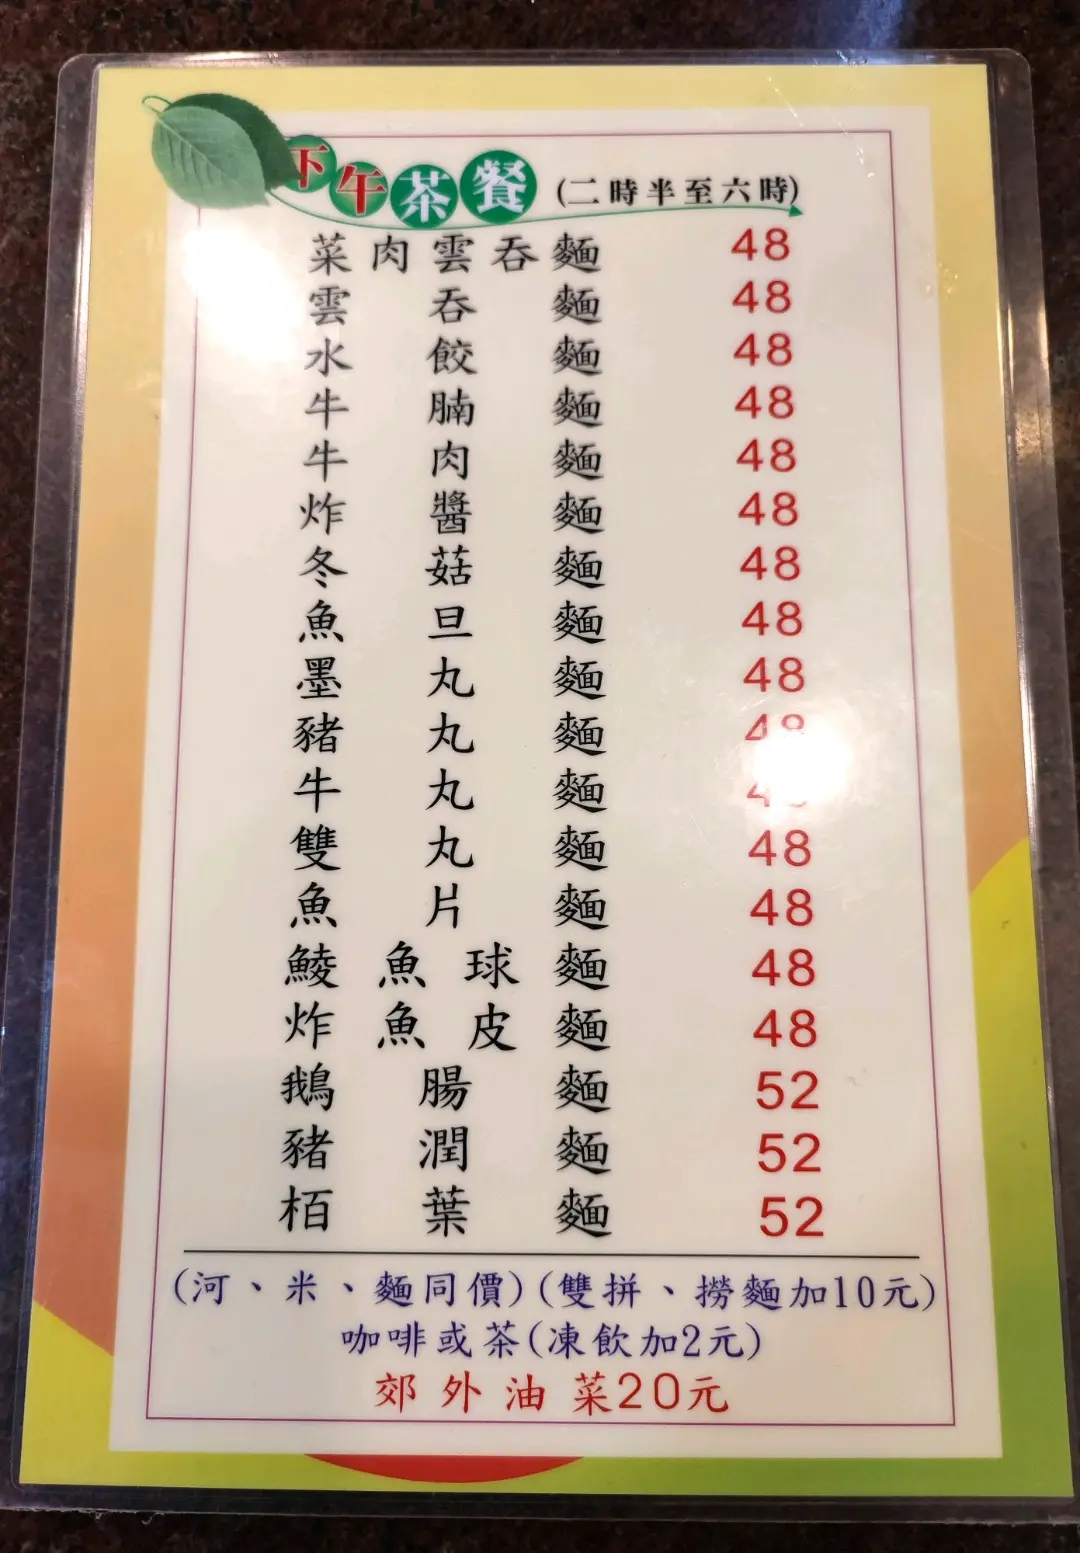 下午茶餐 (二時半至六時)
菜肉雲吞麵 48
雲吞麵 48
水餃麵 48
牛腩麵 48
牛肉麵 48
炸醬麵 48
冬菇麵 48
魚旦麵 48
墨丸麵 48
豬丸麵 48
牛丸麵 48
雙丸麵 48
魚片麵 48
鯪魚球麵 48
炸魚皮麵 48
鵝腸麵 52
豬潤麵 52
栢葉麵 52
(河、米、麵同價)(雙拼、撈麵加10元)
咖啡或茶(凍飲加2元)
郊外油菜20元